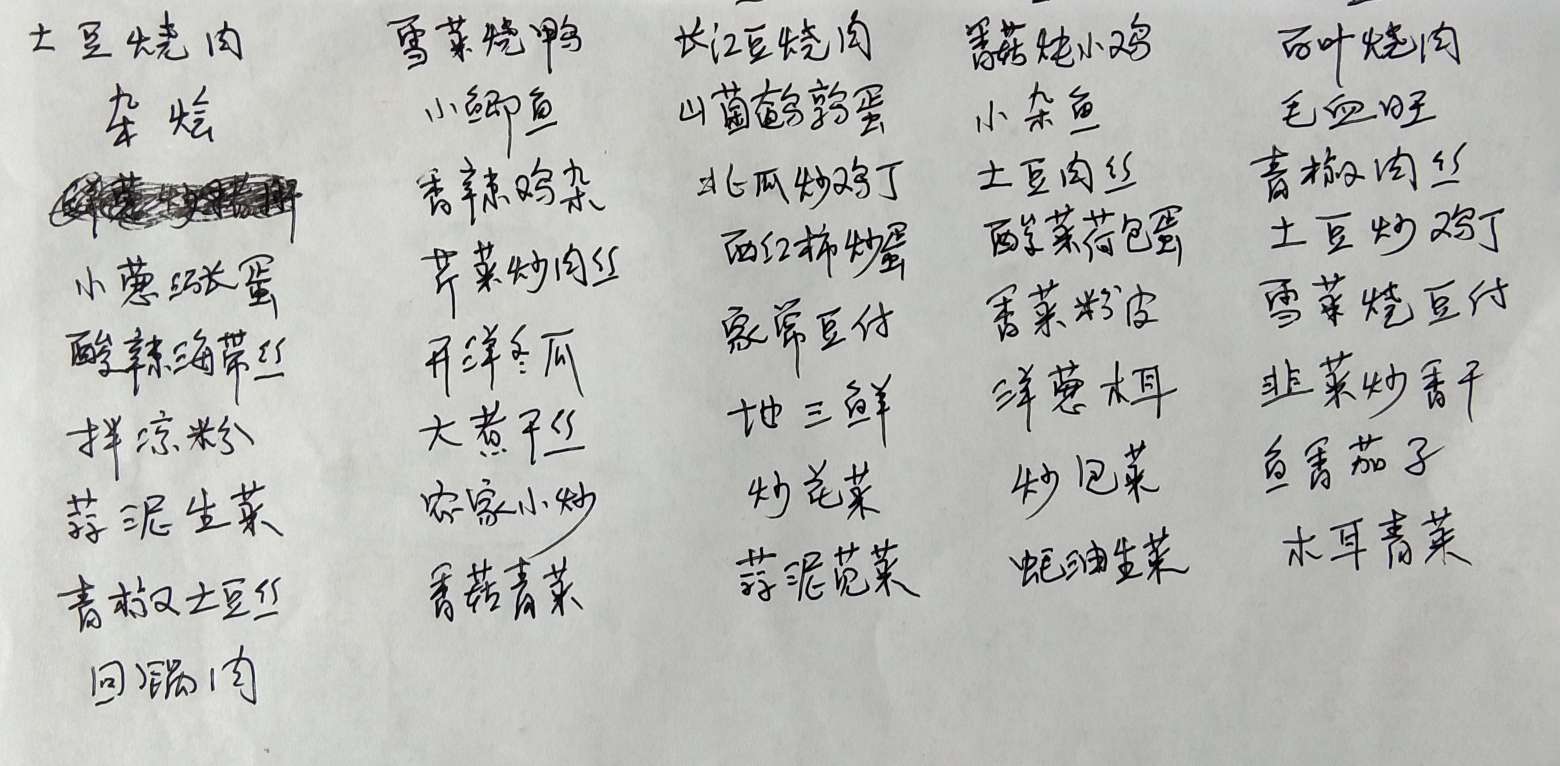 土豆烧肉
杂烩
小葱涨蛋
酸辣海带丝
拌凉粉
蒜泥生菜
青椒土豆丝
回锅肉
雪菜烧鸭
小鲫鱼
香辣鸡杂
芹菜炒肉丝
开洋冬瓜
大煮干丝
农家小炒
香菇青菜
长江豆烧肉
山菌鹌鹑蛋
北瓜炒鸡丁
西红柿炒蛋
家常豆付
地三鲜
炒花菜
蒜泥苋菜
香菇炖小鸡
小杂鱼
土豆肉丝
酸菜荷包蛋
香菜粉皮
洋葱木耳
炒包菜
蚝油生菜
百叶烧肉
毛血旺
青椒肉丝
土豆炒鸡丁
雪菜烧豆付
韭菜炒香干
鱼香茄子
木耳青菜